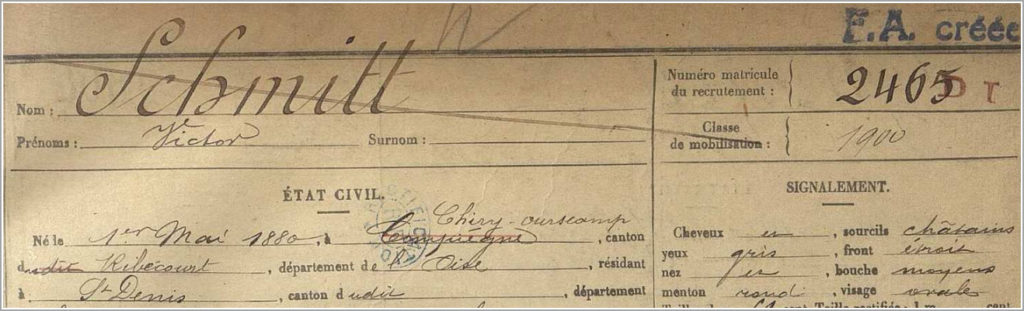 F.A. créée
Nom : Schmitt
Prénoms : Victor Surnom :
Numéro matricule
du recrutement : 2465 DT
Classe
de mobilisation : 1900
ÉTAT CIVIL.
Chiry-ourscamp
Né le 1er Mai 1880, à Compiègne, canton
dudit Ribécourt, département de l'Oise, résidant
à St Denis, canton dudit, département
SIGNALEMENT.
Cheveux et, sourcils châtains
yeux gris, front étroit
nez et, bouche moyens
menton rond, visage ovale